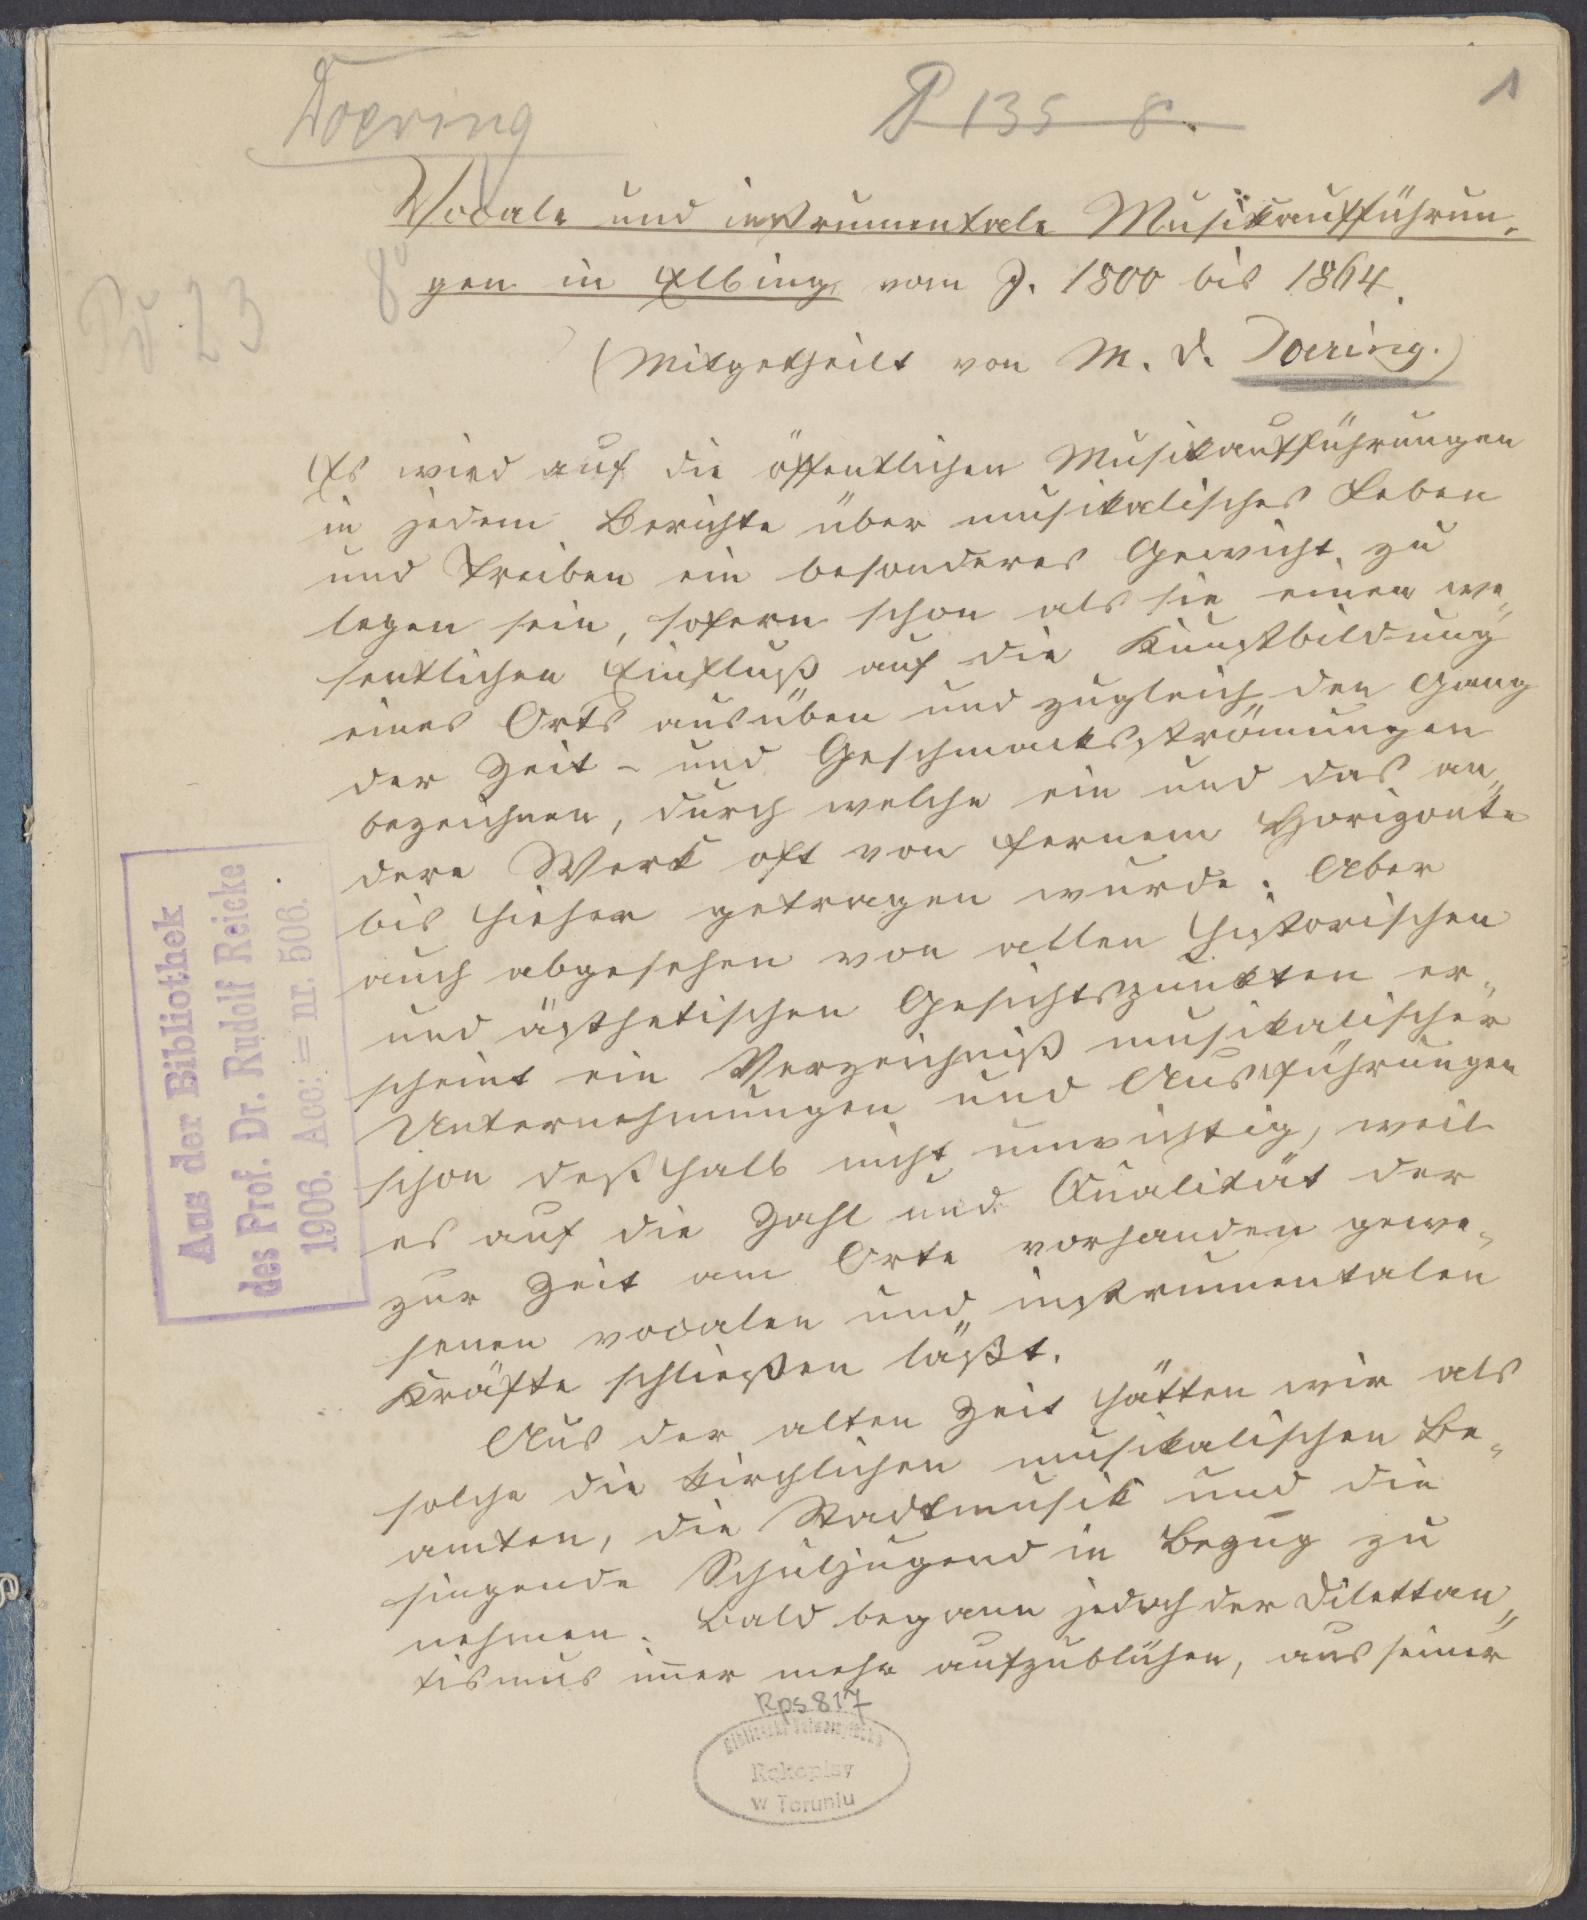 Doering
P 135 8.
1
Vocale und instrumentale Musikaufführun-
gen in Elbing vom J. 1800 bis 1864.
8°
Pr 23
(Mitgetheilt von M. D. Doering.)
Es wird auf die öffentlichen Musikaufführungen
in jedem Berichte über musikalisches Leben
und Treiben ein besonderes Gewicht zu
legen sein, sofern schon als sie einen we-
sentlichen Einfluß auf die Kunstbildung
eines Orts ausüben und zugleich den Gang
der Zeit- und Geschmacksströmungen
bezeichnen, durch welche ein und das an-
dere Werk oft von fernem Horizonte
bis hieher getragen wurde. Aber
auch abgesehen von allen historischen
und ästhetischen Gesichtspunkten er-
scheint ein Verzeichniß musikalischer
Unternehmungen und Ausführungen
schon deßhalb nicht unwichtig, weil
es auf die Zahl und Qualität der
zur Zeit am Orte vorhanden gewe-
senen vocalen und instrumentalen
Kräfte schließen läßt.
Aus der alten Zeit hätten wir als
solche die kirchlichen musikalischen Be-
amten, die Stadtmusik und die
singende Schuljugend in Bezug zu
nehmen. Bald begann jedoch der Dilettan-
tismus im̅er mehr aufzublühen, aus seiner
Aus der Bibliothek
des Prof. Dr. Rudolf Reicke
1906. Acc. = nr. 506.
Rps 817
Biblioteka Uniwersytecka
Rękopisy
w Toruniu